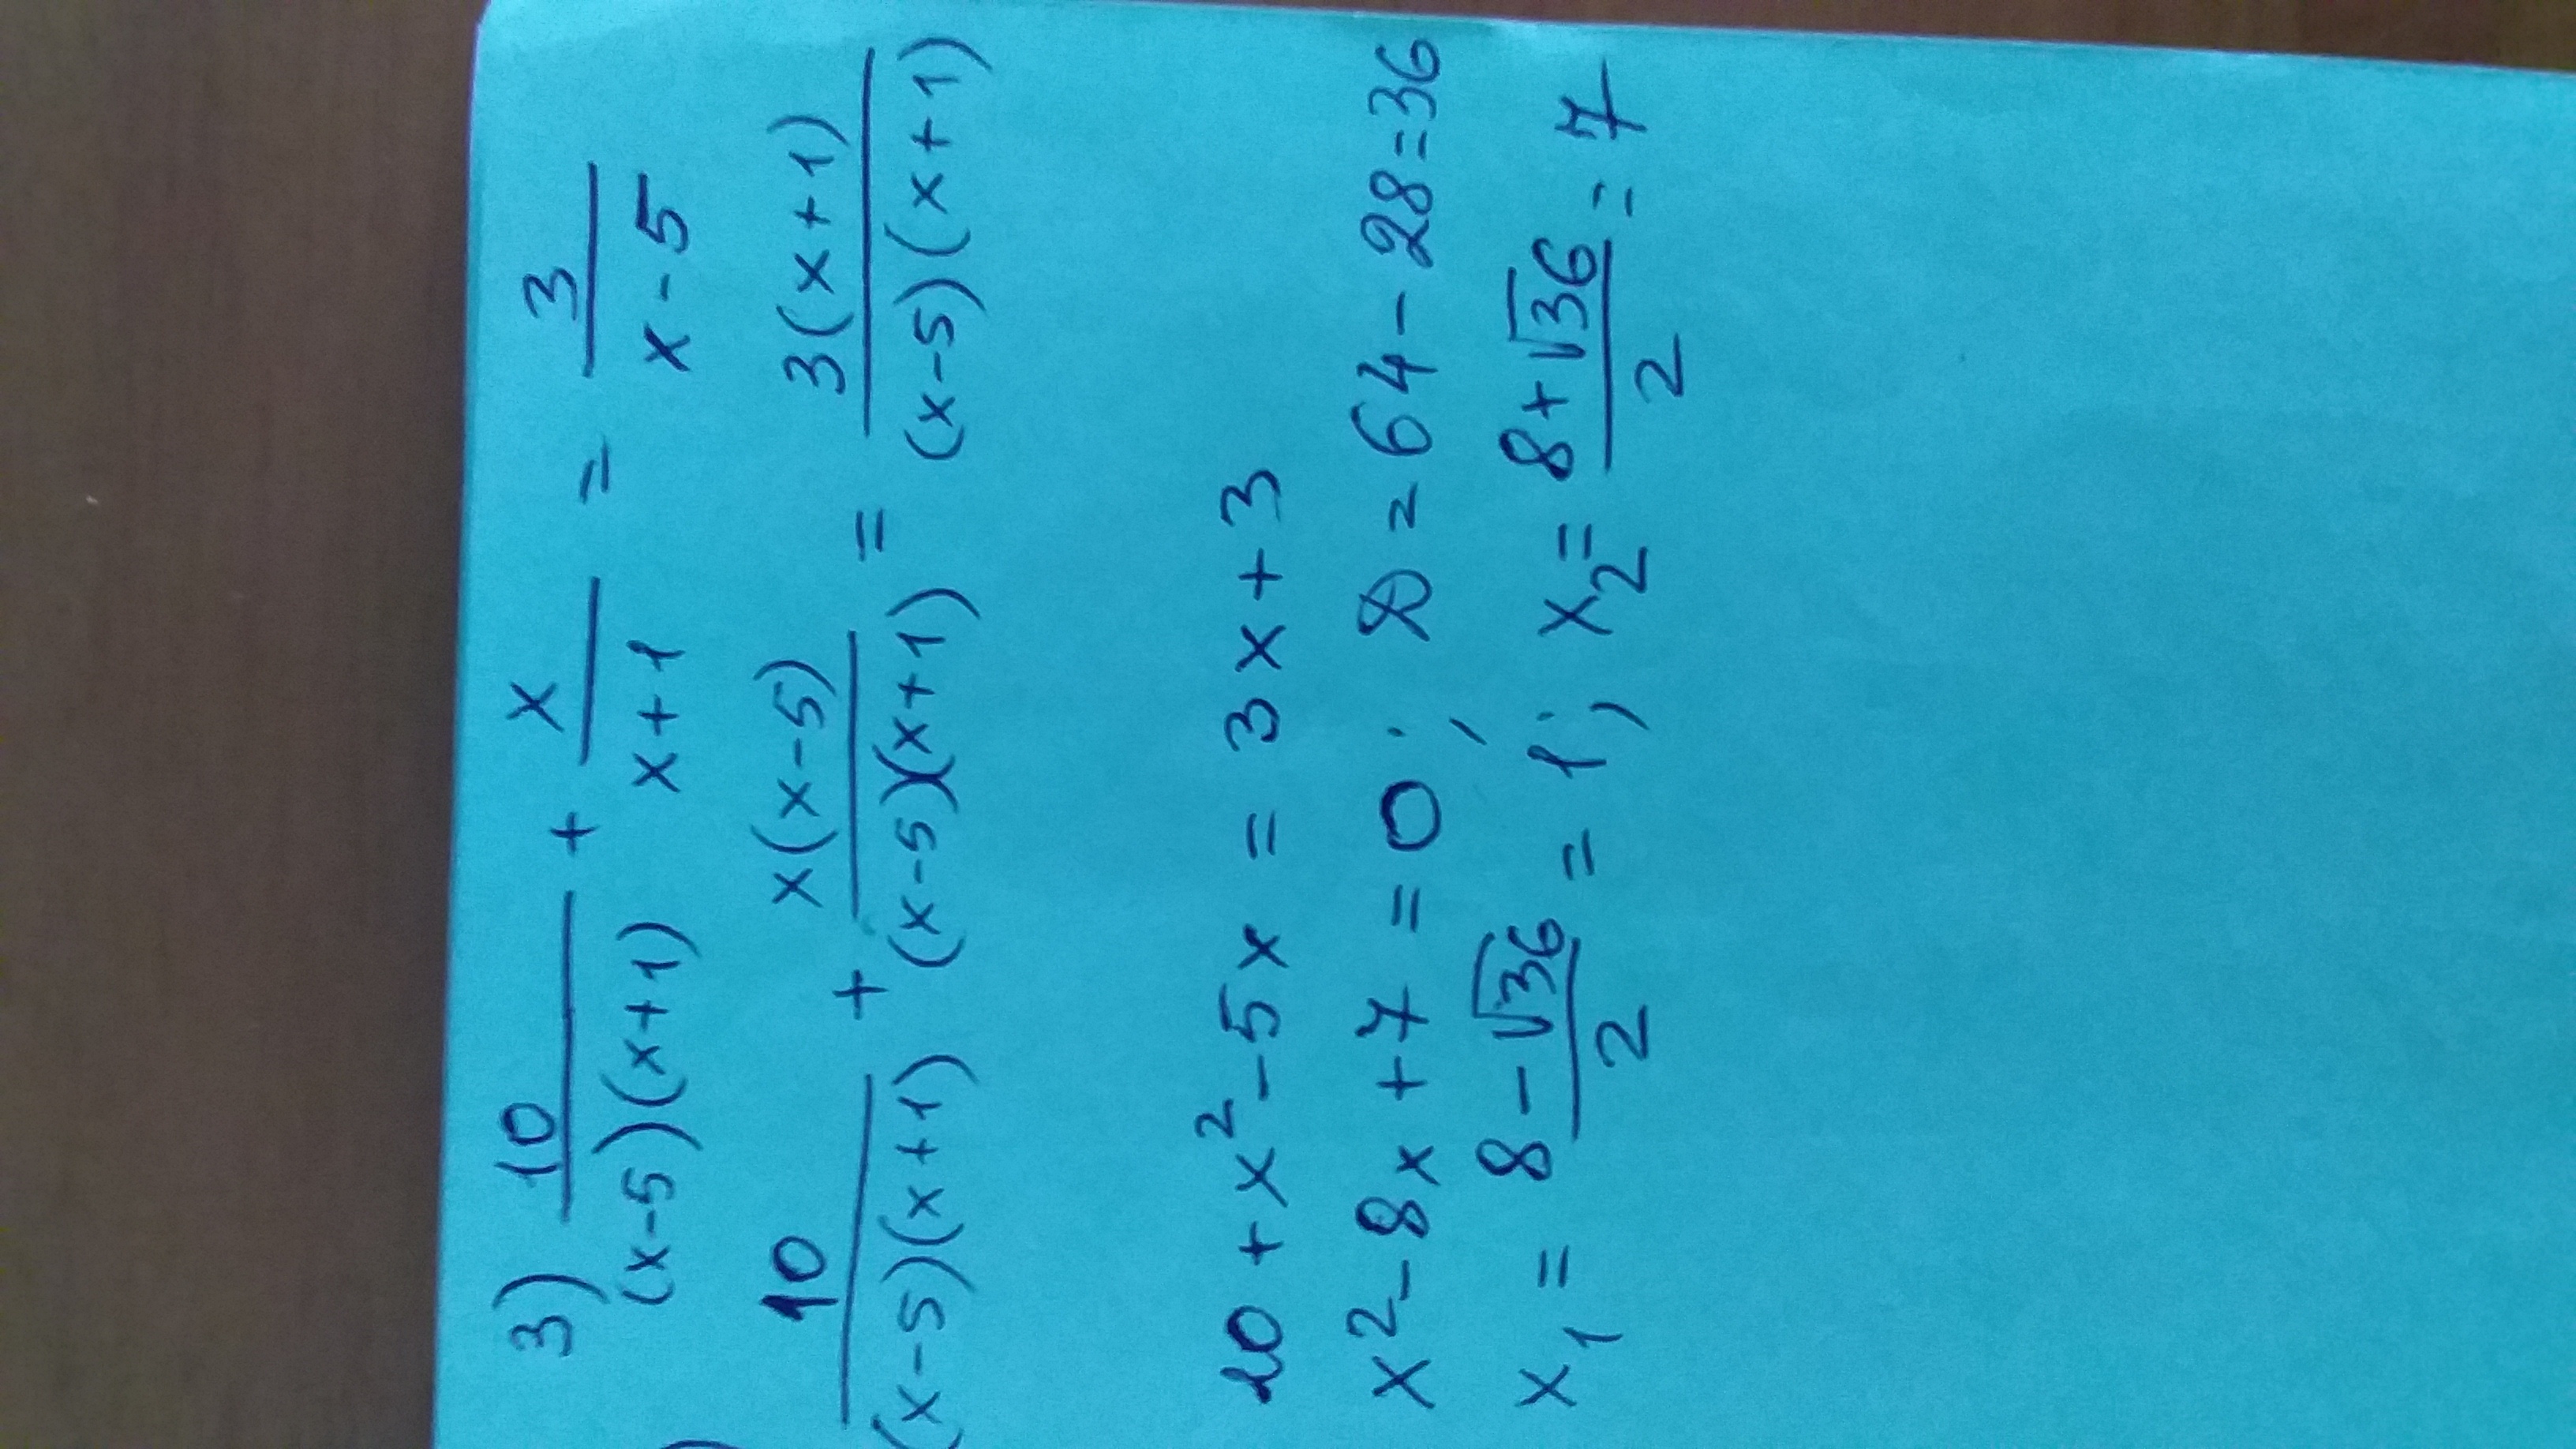 3) 10/((x-5)(x+1)) + x/(x+1) = 3/(x-5)
10/((x-5)(x+1)) + x(x-5)/((x-5)(x+1)) = 3(x+1)/((x-5)(x+1))
10 + x² - 5x = 3x + 3
x² - 8x + 7 = 0; D = 64 - 28 = 36
x₁ = (8 - √36)/2 = 1; x₂ = (8 + √36)/2 = 7